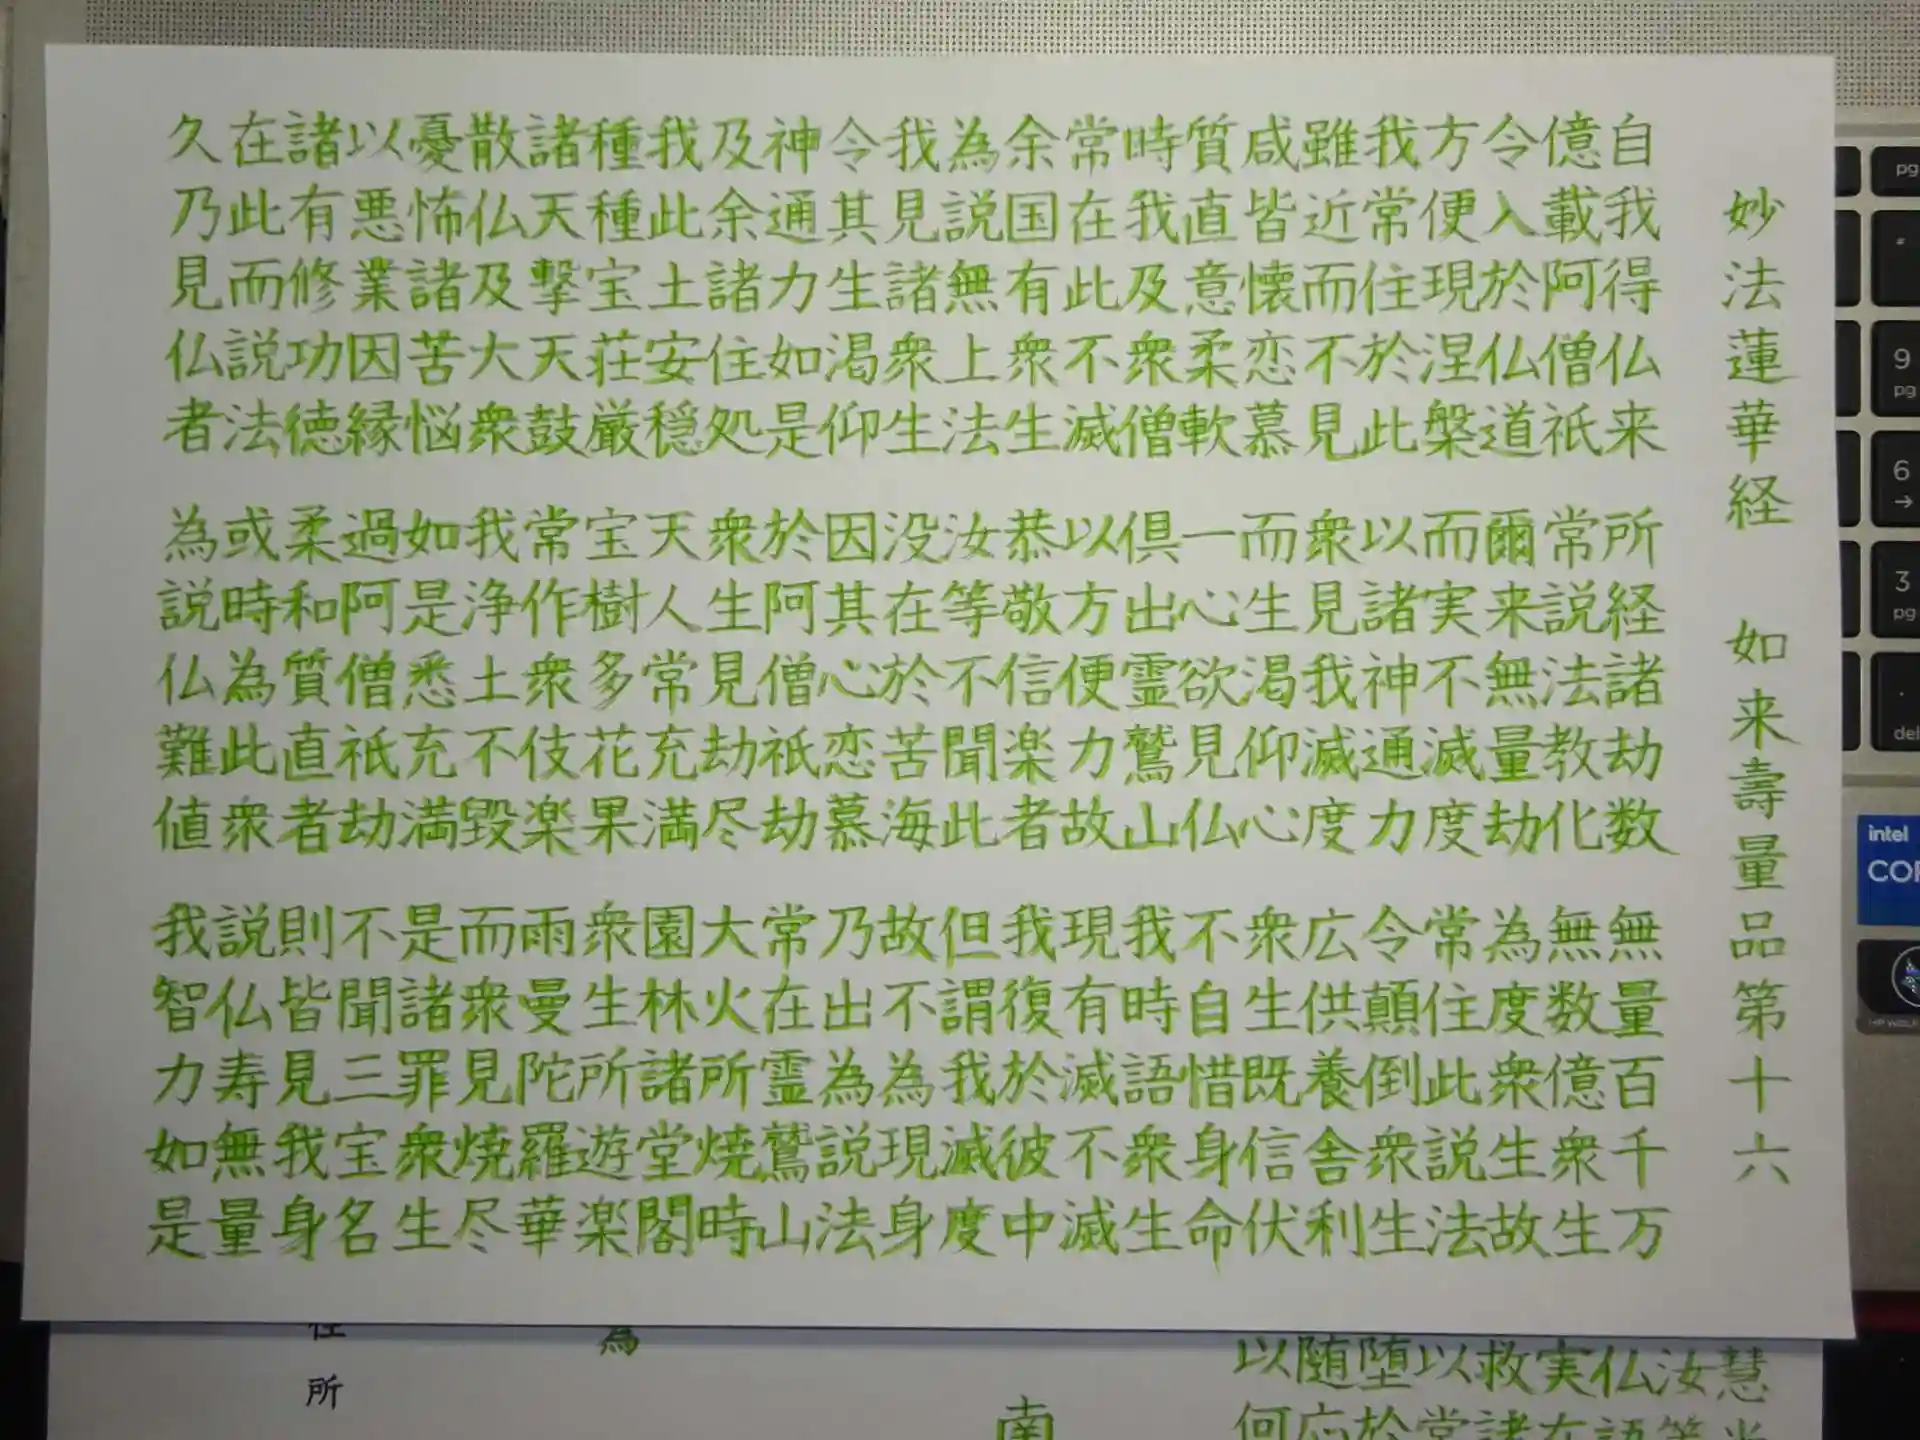 妙法蓮華経　如来壽量品第十六
自我得仏来　所経諸劫数　無量百千万
億載阿僧祇　常説法教化　無数億衆生
令入於仏道　爾来無量劫　為度衆生故
方便現涅槃　而実不滅度　常住此説法
我常住於此　以諸神通力　令顛倒衆生
雖近而不見　衆見我滅度　広供養舎利
咸皆懐恋慕　而生渇仰心　衆生既信伏
質直意柔軟　一心欲見仏　不自惜身命
時我及衆僧　倶出霊鷲山　我時語衆生
常在此不滅　以方便力故　現有滅不滅
余国有衆生　恭敬信楽者　我復於彼中
為説無上法　汝等不聞此　但謂我滅度
我見諸衆生　没在於苦海　故不為現身
令其生渇仰　因其心恋慕　乃出為説法
神通力如是　於阿僧祇劫　常在霊鷲山
及余諸住処　衆生見劫尽　大火所焼時
我此土安穏　天人常充満　園林諸堂閣
種種宝荘厳　宝樹多花果　衆生所遊楽
諸天撃天鼓　常作衆伎楽　雨曼陀羅華
散仏及大衆　我浄土不毀　而衆見焼尽
憂怖諸苦悩　如是悉充満　是諸罪衆生
以悪業因縁　過阿僧祇劫　不聞三宝名
諸有修功徳　柔和質直者　則皆見我身
在此而説法　或時為此衆　説仏寿無量
久乃見仏者　為説仏難値　我智力如是
慧
汝等
仏語
実在
救諸
以常
堕於
随応
以何
南
為
所
pg
9
pg
6
3
pg
.
del
intel